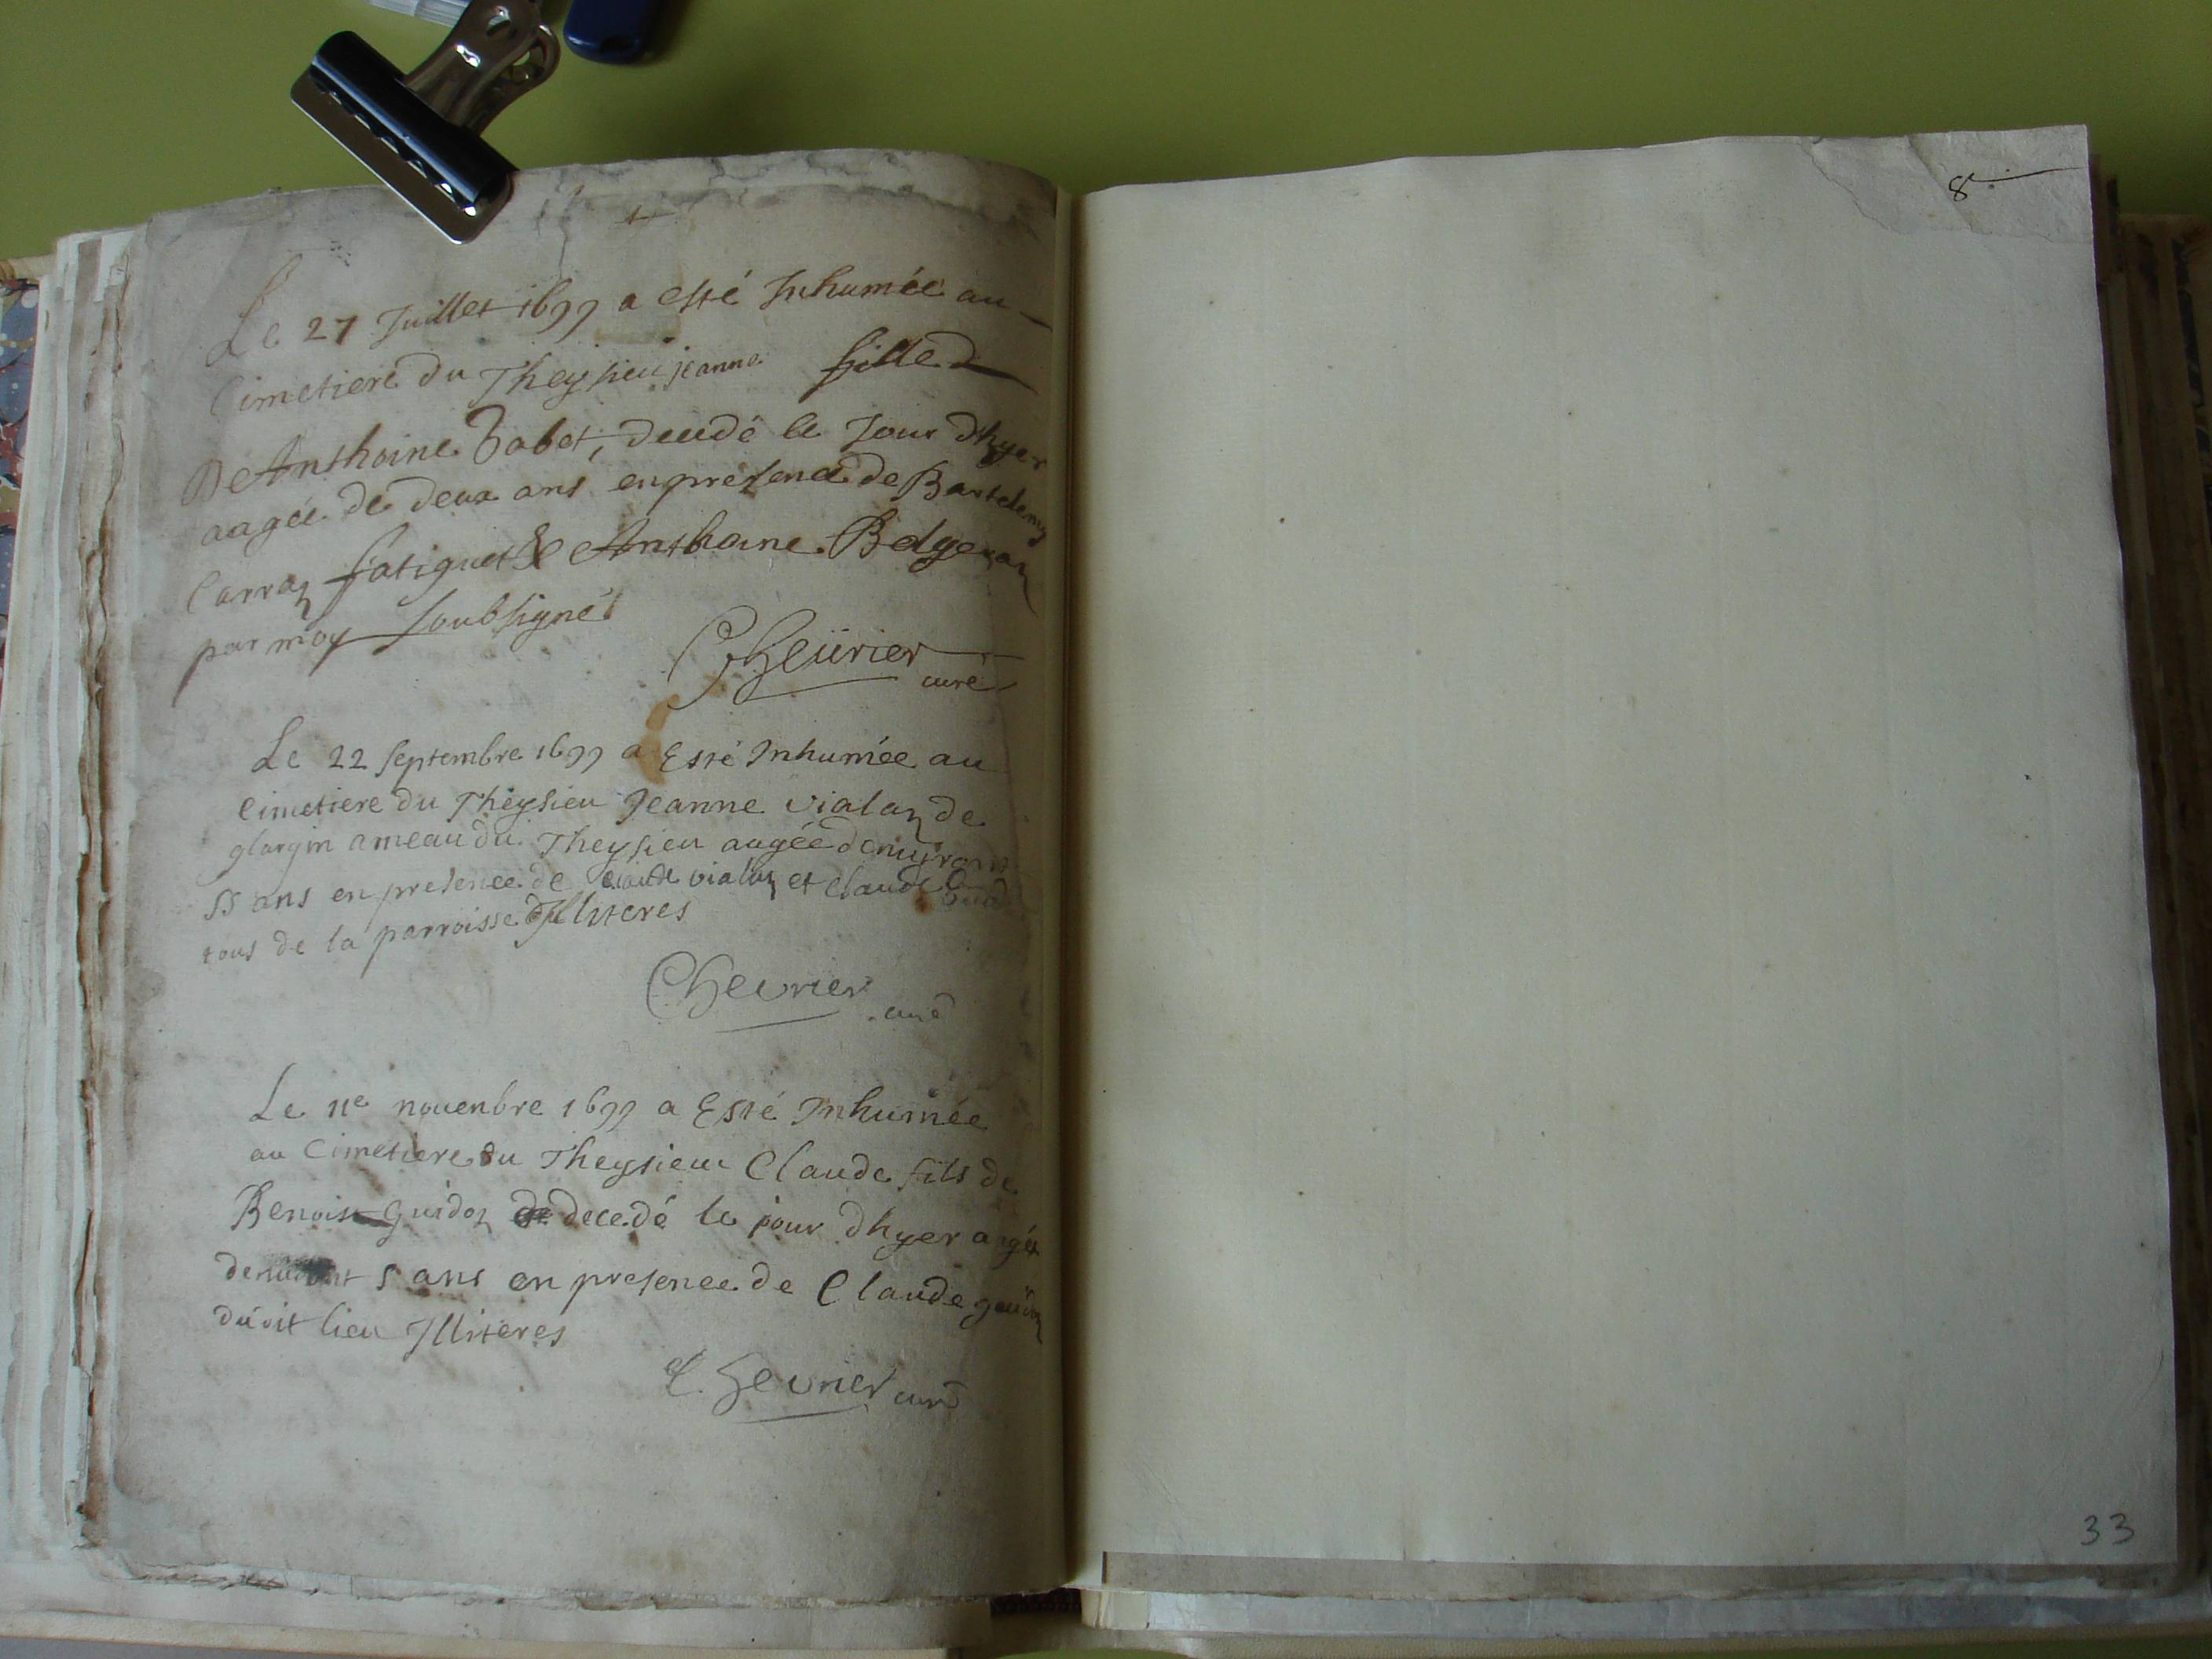 Le 27 Juillet 1699 a esté Inhumée au
Cimetiere du Theysieu jeanne fille
De Anthoine Babet, decedé le Jour dhyer
aagée de deux ans en presence de Bartelemy
Carraz fatiguet & Anthoine
par moy soubsigné
Cheurier
curé
Le 22 septembre 1699 a Esté Inhumée au
Cimetiere du Theysieu Jeanne vialaz de
glargin ameau du Theysieu aagée denuiron
55 ans en presence de claude vialaz et claude
tous de la parroisse Illiteres
Chevrier curé
Le 11e nouenbre 1699 a Esté Inhumée
au Cimetiere du Theysieu Claude fils de
Benoist Guidoz decedé le jour dhyer aagé
5 ans en presence de Claude
dudit lieu Illiteres
Chevrier curé
8
33